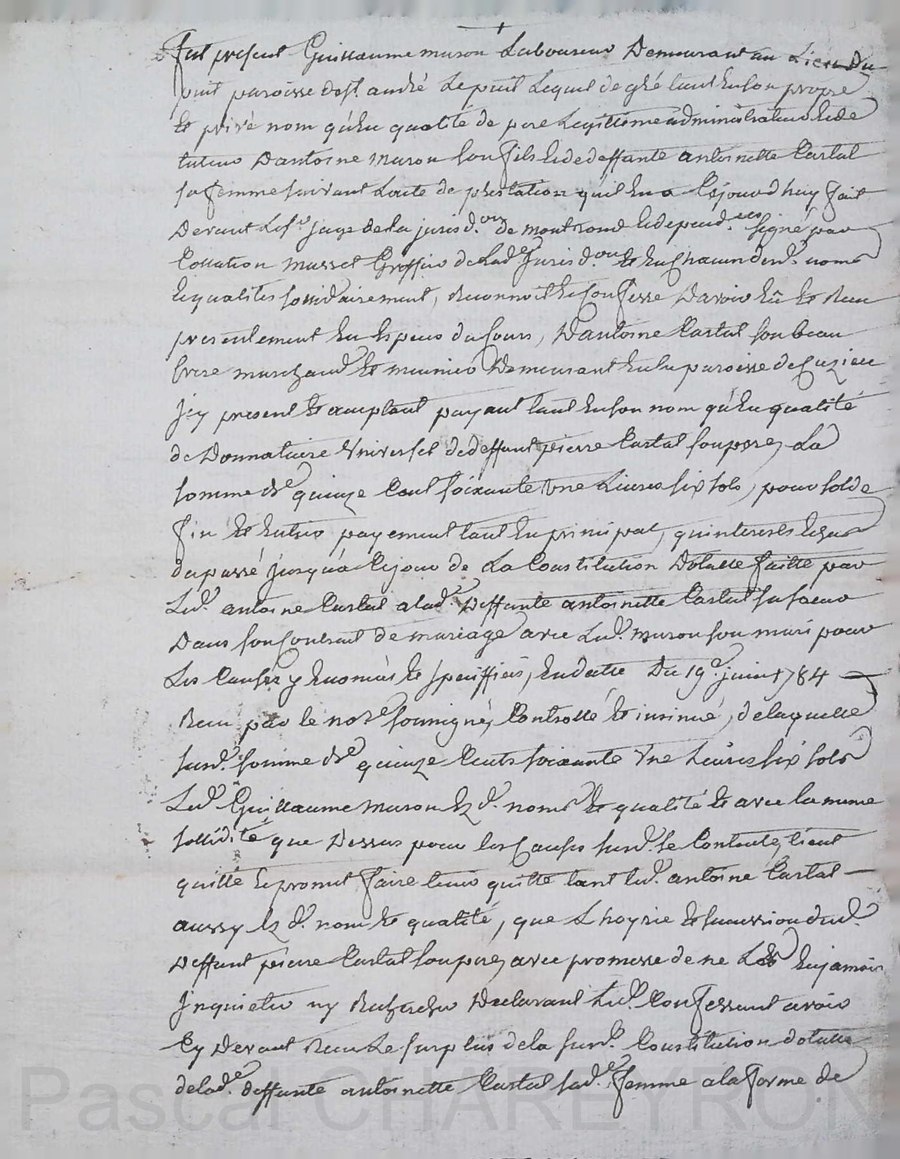 Fut present Guillaume muron Laboureur Demeurant au Lieu Du
puit paroisse de st. andré Le puit Lequel de gré tant en son propre
et privé nom qu'en qualité de pere Legitime administrateur et de
tuteur D'antoine muron son fils et de deffunte antoinette Cartal
sa femme suivant L'acte de prestation qu'il en a Cejourd'huy fait
Devant Le sr. juge de la jurisd.on de montrond et depend.ces signé par
Collation musset Greffier de Lad.e Jurisd.on et en Chacun desd. noms
et qualités sollidairement, Reconnoit et Confesse D'avoir Eû et Receu
presentement En Especes du Cours, D'antoine Cartal son beau
frere marchand et meunier Demeurant en la paroisse de Cuzieu
J'cy present et acceptant payant tant en son nom qu'en qualité
de Donnataire Universel de deffunt pierre Cartal son pere, La
somme de quinze Cent soixante Une Livres six sols, pour solde
fin et Entier payement tant En principal, qu'interests
du passé jusqu'à Cejour de La Constitution Dotalle faitte par
Led. antoine Cartal a lad.e Deffunte antoinette Cartal sa soeur
Dans son Contrat de mariage avec Led. muron son mari pour
Les Causes y Enoncées et speciffiées, En datte Du 19e juin 1784
Receu par le no.re soussigné, Controllé et insinué, de laquelle
susd. somme de quinze Cents soixante Une Livres six sols
Led. Guillaume muron Ez d. noms et qualité et avec la meme
sollidité que Dessus pour les Causes susd. se Contente, tient
quitte et promet faire tenir quitte tant led. antoine Cartal
aussy Ez d. nom et qualité, que L'hoyrie et succession dud.
Deffunt pierre Cartal son pere, avec promesse de ne Les En jamais
Inquieter ny Rechercher Declarant Led. Confessant avoir
Cy Devant Receu Le surplus de la susd. Constitution dotalle
de lad.e deffunte antoinette Cartal sad.e femme a la forme de
Pascal CHAREYRON